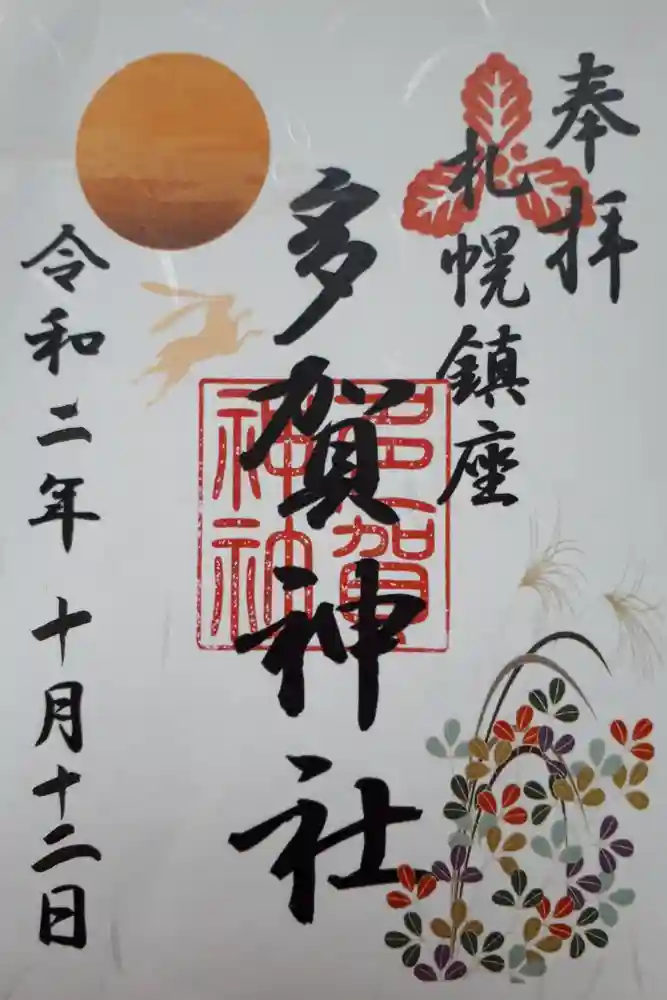 奉拝
札幌鎮座
多賀神社
多賀
神社
令和二年 十月十二日